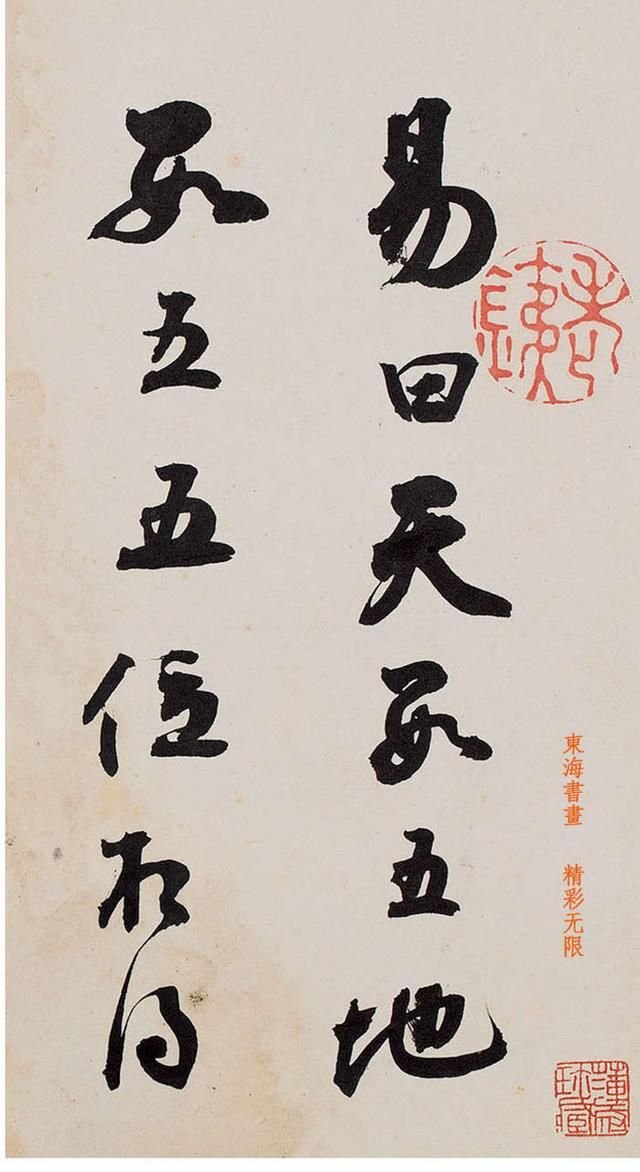 易曰天數五地
數五五位相得
東海書畫 精彩无限